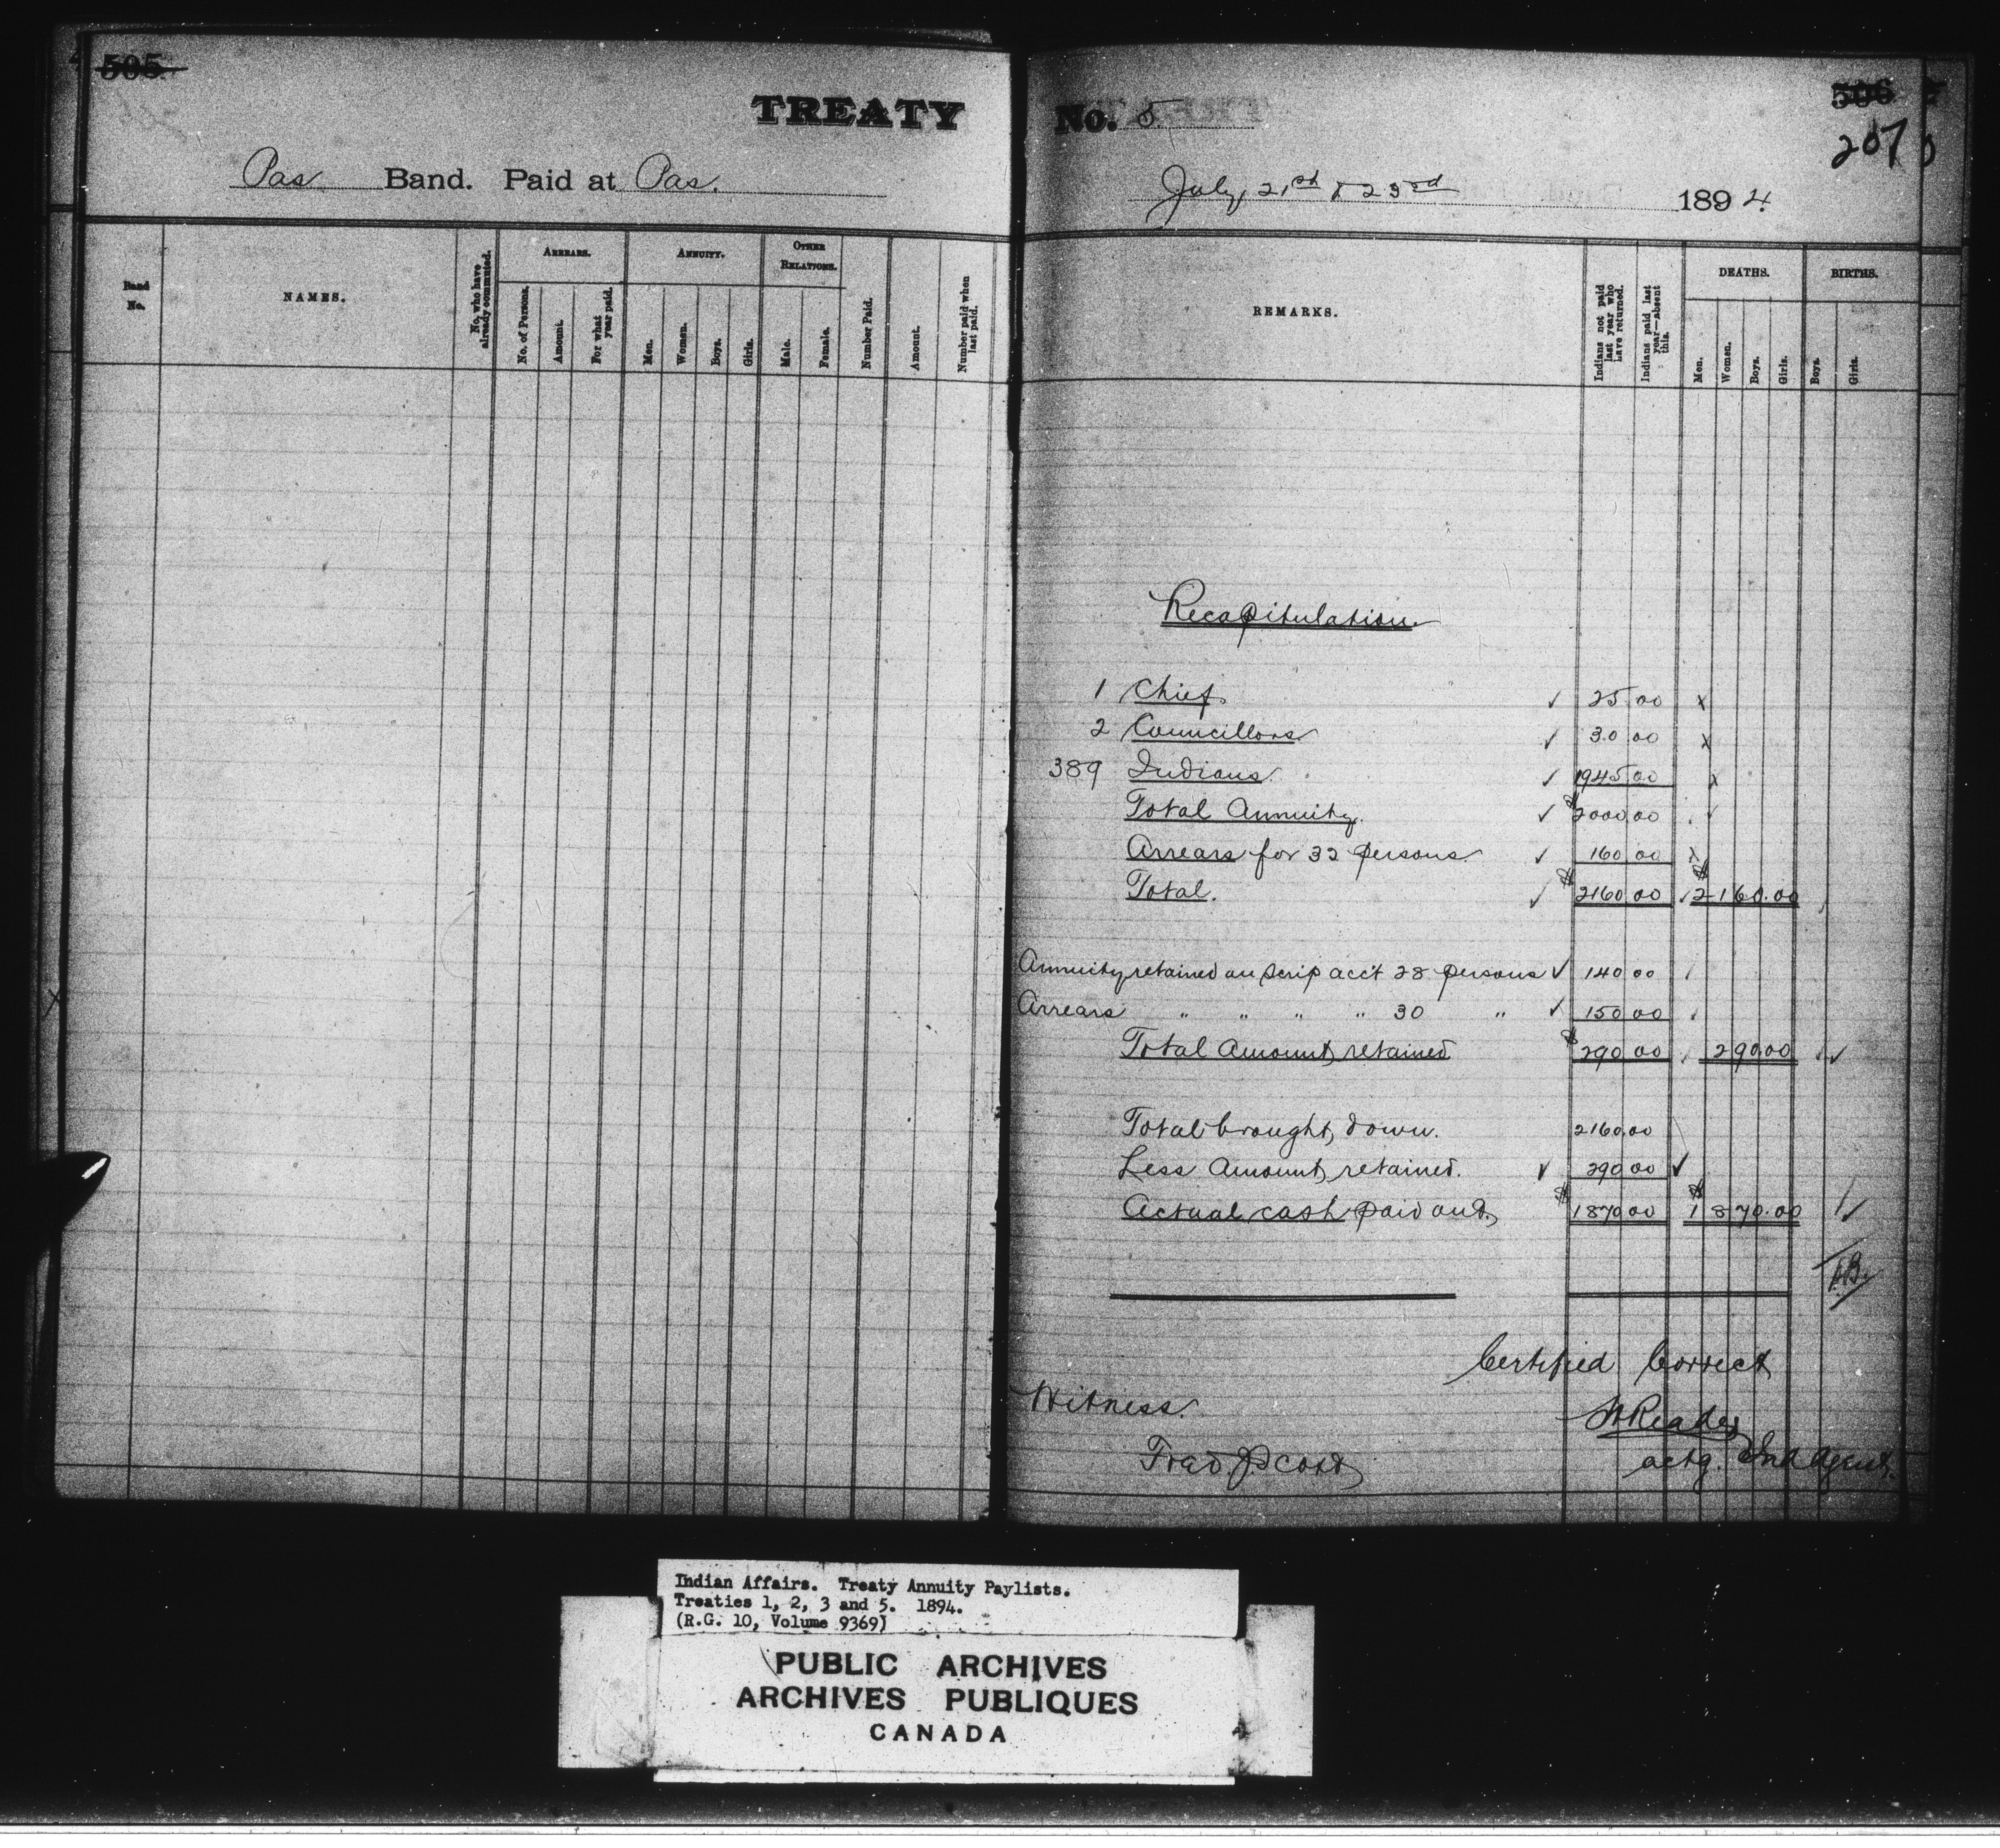 505
TREATY
Pas Band. Paid at Pas.
Band No.
NAMES.
No. who have already commuted.
ARREARS.
No. of Persons.
Amount.
For what year paid.
ANNUITY.
Men.
Women.
Boys.
Girls.
OTHER RELATIONS.
Male.
Female.
Number Paid.
Amount.
Number paid when last paid.
No. 5.
506
207
July, 21st & 23rd 1894
REMARKS.
Indians not paid last year who have returned.
Indians paid last year—absent this.
DEATHS.
Men.
Women.
Boys.
Girls.
BIRTHS.
Boys.
Girls.
Recapitulation.
1 Chief. ✓ 25.00 x
2 Councillors ✓ 30.00 x
389 Indians. ✓ 1945.00 x
Total Annuity. ✓ $2000.00 ✓
Arrears for 32 persons. ✓ 160.00 x
Total. ✓ $2160.00 ✓ $2160.00
Annuity retained on scrip acct 28 persons ✓ 140.00
Arrears " " " " 30 " ✓ 150.00
Total Amount retained $290.00 290.00 ✓
Total brought down. 2160.00
Less Amount retained. ✓ 290.00 ✓
Actual cash paid out. $1870.00 $1870.00 ✓
Certified Correct
Witness.
Reader
Fred.
actg. Ind Agent.
Indian Affairs. Treaty Annuity Paylists.
Treaties 1, 2, 3 and 5. 1894.
(R.G. 10, Volume 9369)
PUBLIC ARCHIVES
ARCHIVES PUBLIQUES
CANADA